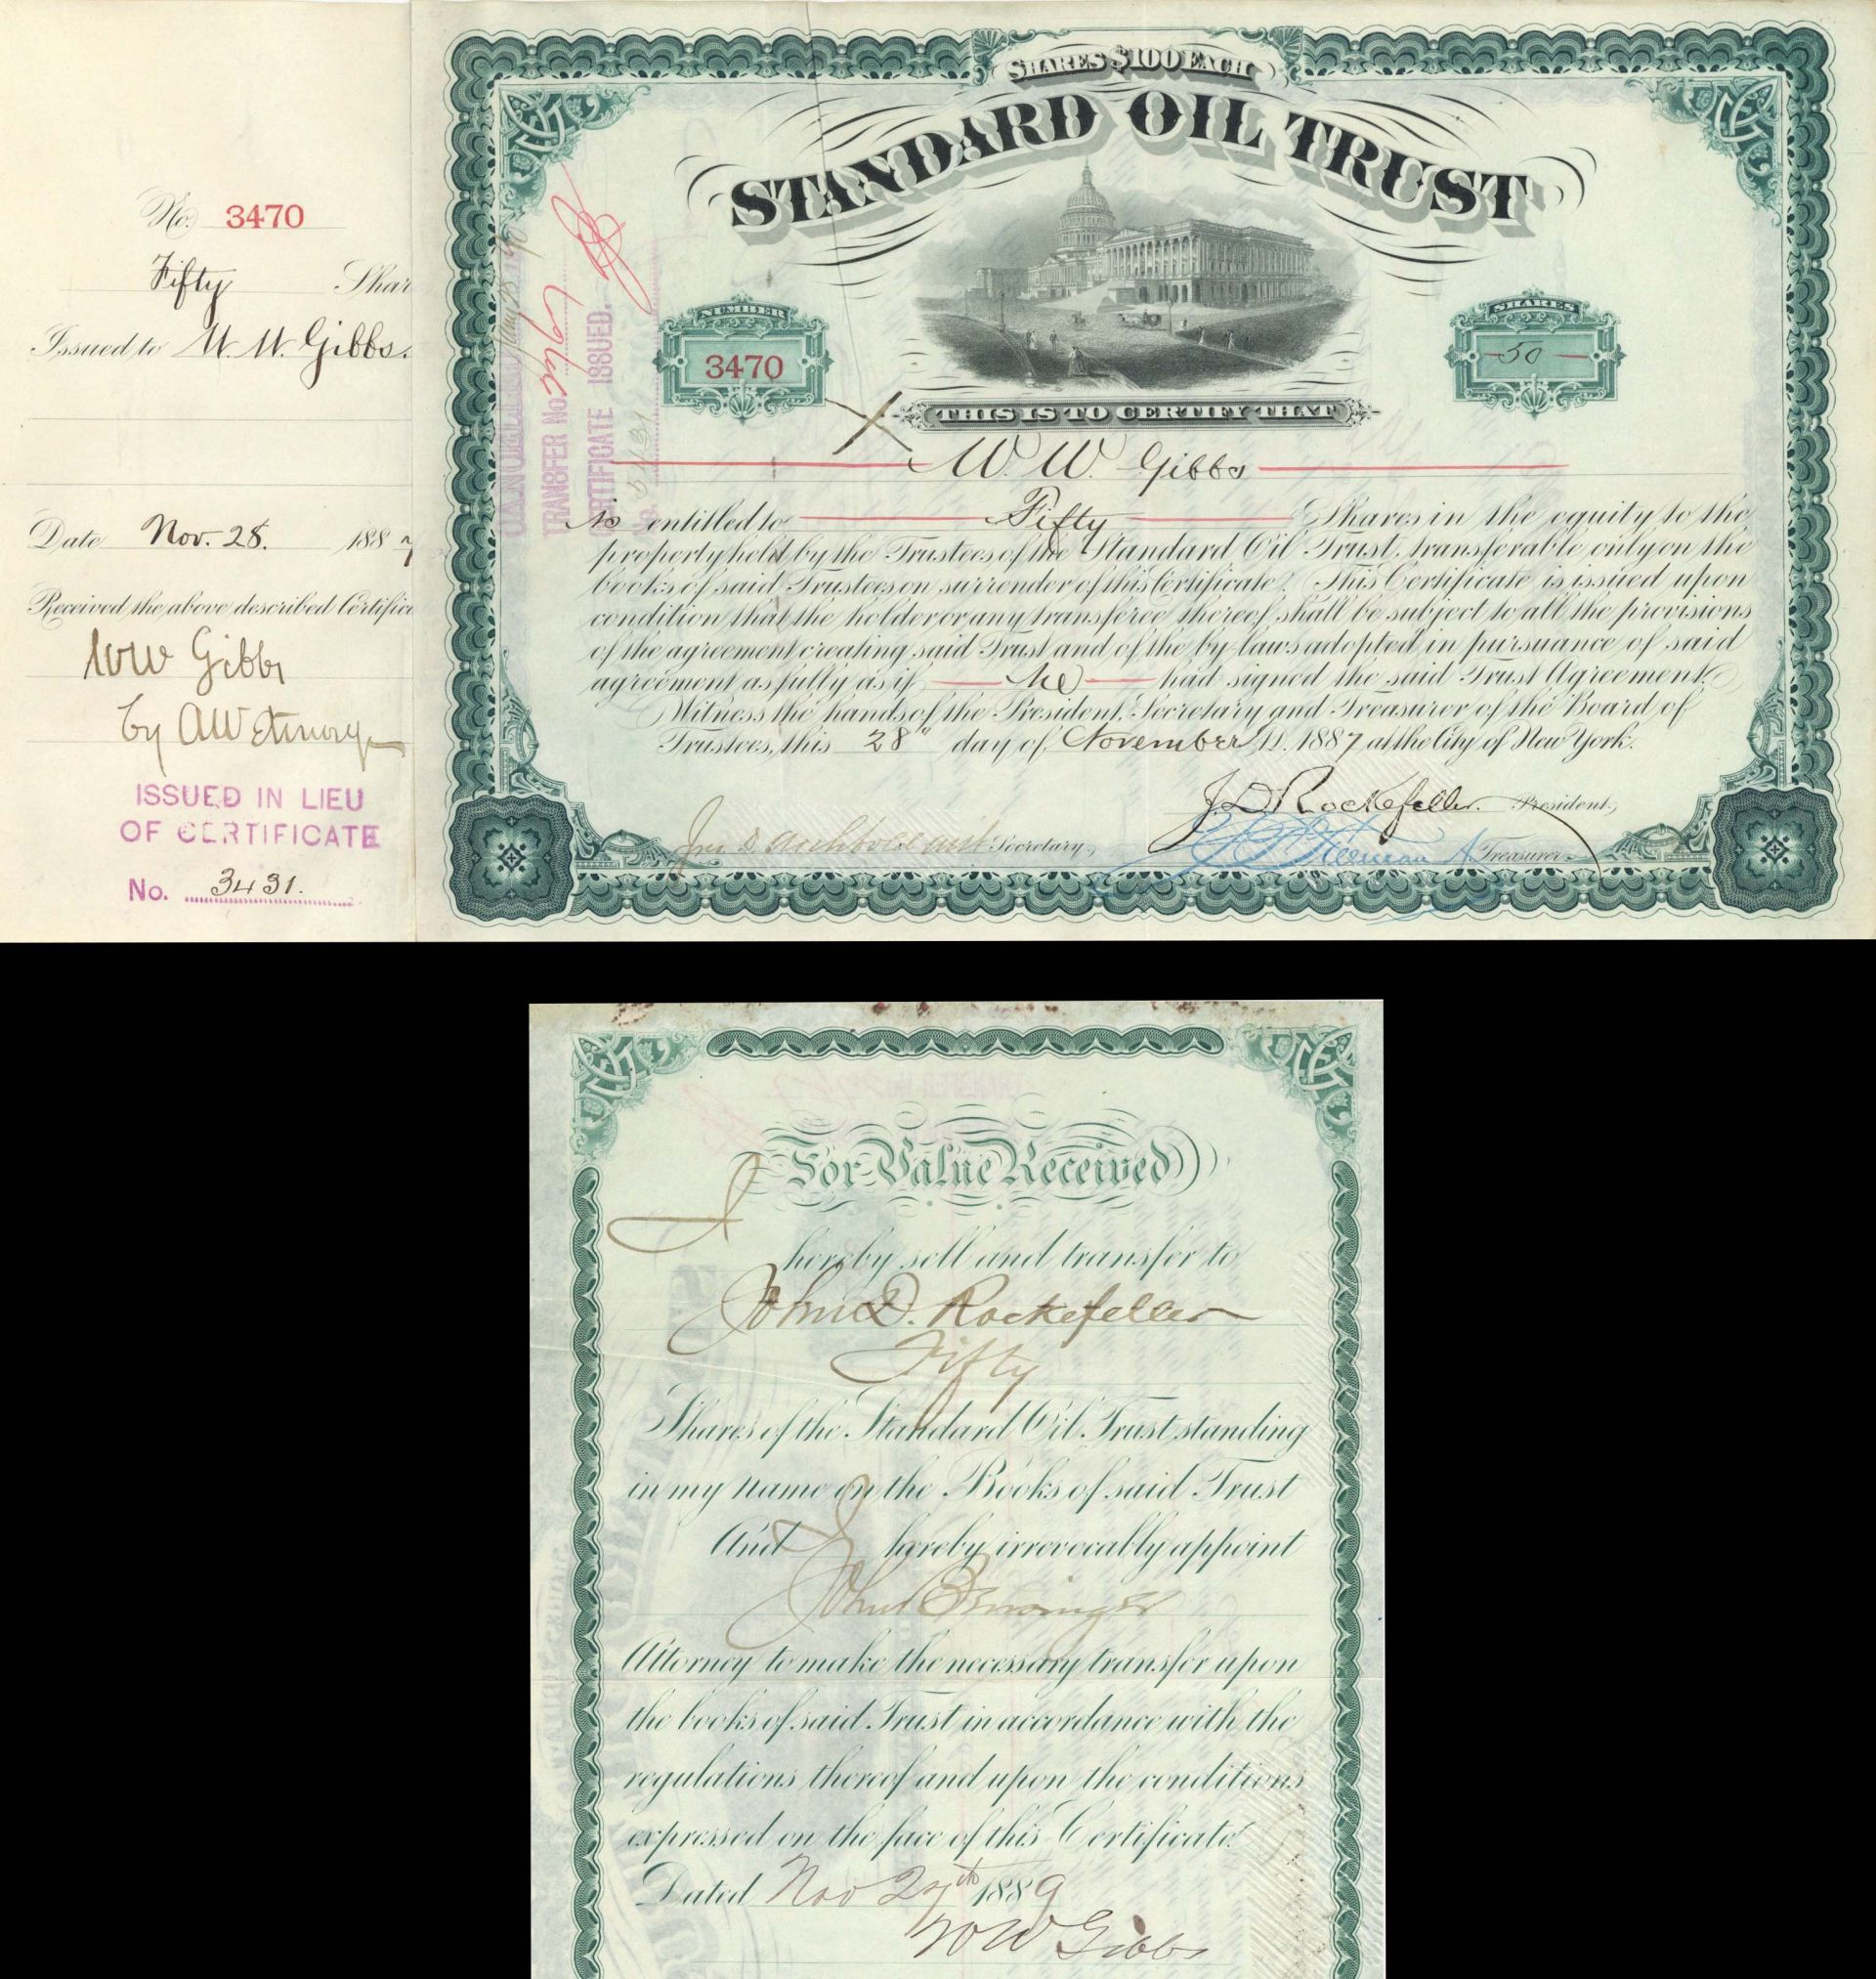 No. 3470
Fifty Shar
Issued to W. W. Gibbs.
Date Nov. 28. 1887
Received the above described Certific
WW Gibbs
by AW
ISSUED IN LIEU
OF CERTIFICATE
No. 3431.
SHARES $100 EACH
STANDARD OIL TRUST
NUMBER
3470
SHARES
50
CANCELLED
TRANSFER No
CERTIFICATE ISSUED.
No.
THIS IS TO CERTIFY THAT
W. W. Gibbs
is entitled to Fifty Shares in the equity to the
property held by the Trustees of the Standard Oil Trust, transferable only on the
books of said Trustees on surrender of this Certificate. This Certificate is issued upon
condition that the holder or any transferee thereof shall be subject to all the provisions
of the agreement creating said Trust and of the by-laws adopted in pursuance of said
agreement as fully as if he had signed the said Trust Agreement.
Witness the hands of the President, Secretary and Treasurer of the Board of
Trustees, this 28" day of November A.D. 1887 at the City of New York.
J D Rockefeller President,
Jno D Archbold asst Secretary,
Treasurer
For Value Received
I
hereby sell and transfer to
John D. Rockefeller
Fifty
Shares of the Standard Oil Trust standing
in my name on the Books of said Trust
And I hereby irrevocably appoint
John
Attorney to make the necessary transfer upon
the books of said Trust in accordance with the
regulations thereof and upon the conditions
expressed on the face of this Certificate.
Dated Nov 27th 1889
WW Gibbs